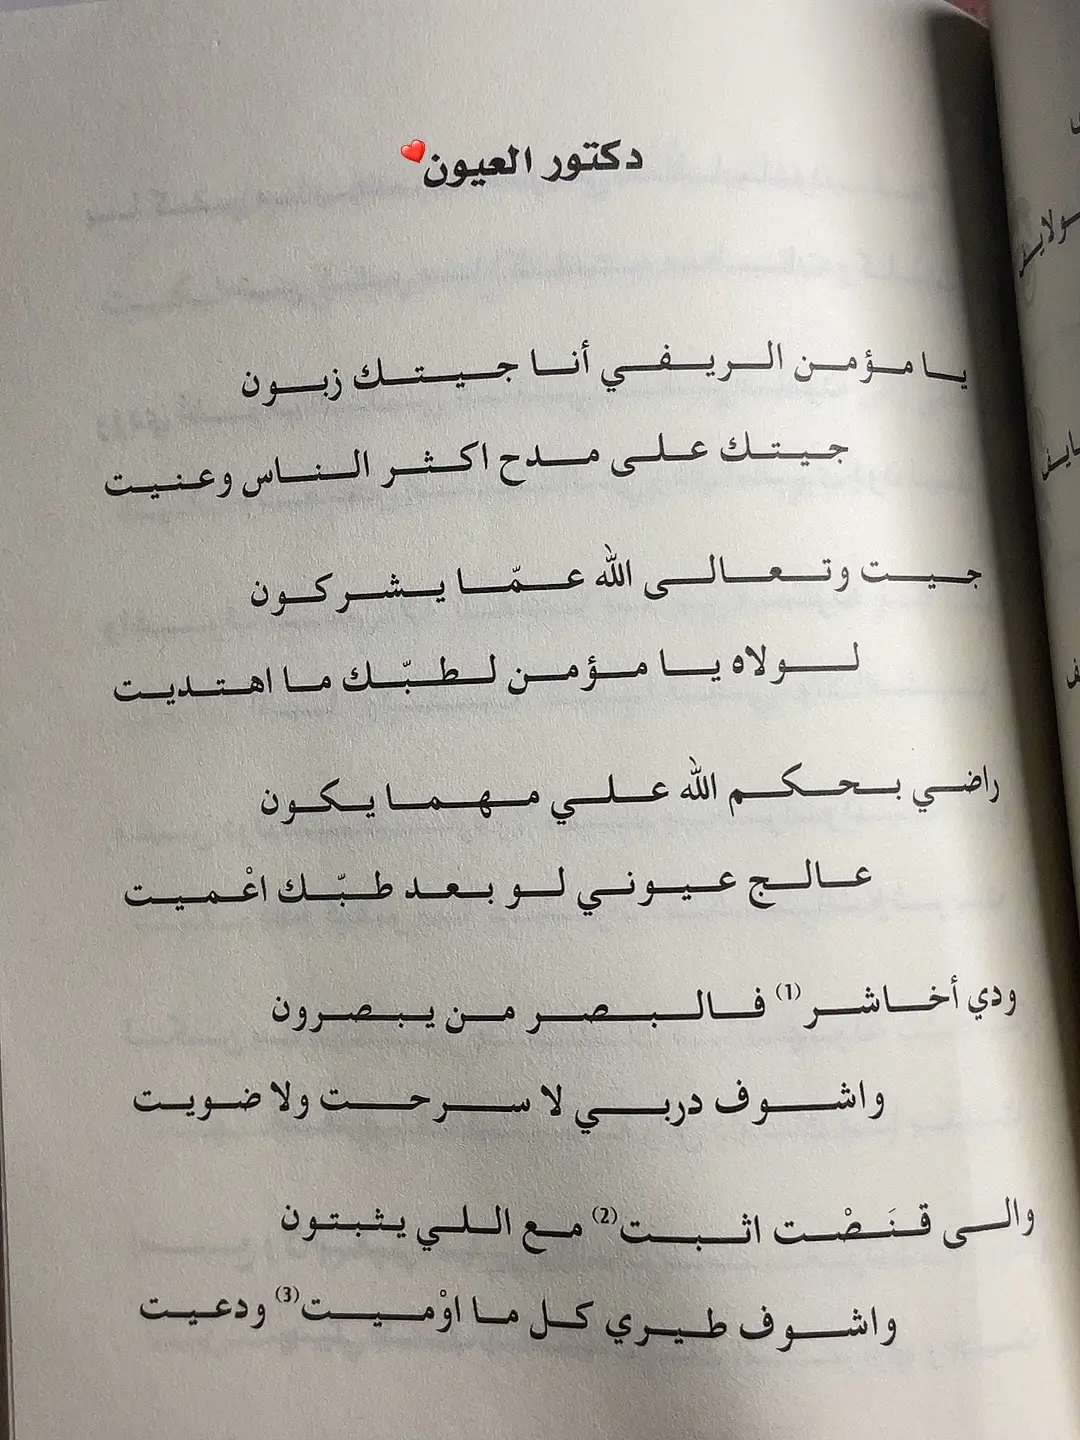 دكتور العيون
يا مؤمن الريفي أنا جيتك زبون
جيتك على مدح اكثر الناس وعنيت
جيت وتعالى الله عمّا يشركون
لولاه يا مؤمن لطبّك ما اهتديت
راضي بحكم الله علي مهما يكون
عالج عيوني لو بعد طبّك اعْميت
ودي أخاشر(1) فالبصر من يبصرون
واشوف دربي لا سرحت ولا ضويت
والى قنَصْت اثبت(2) مع اللي يثبتون
واشوف طيري كل ما اوْميت(3) ودعيت